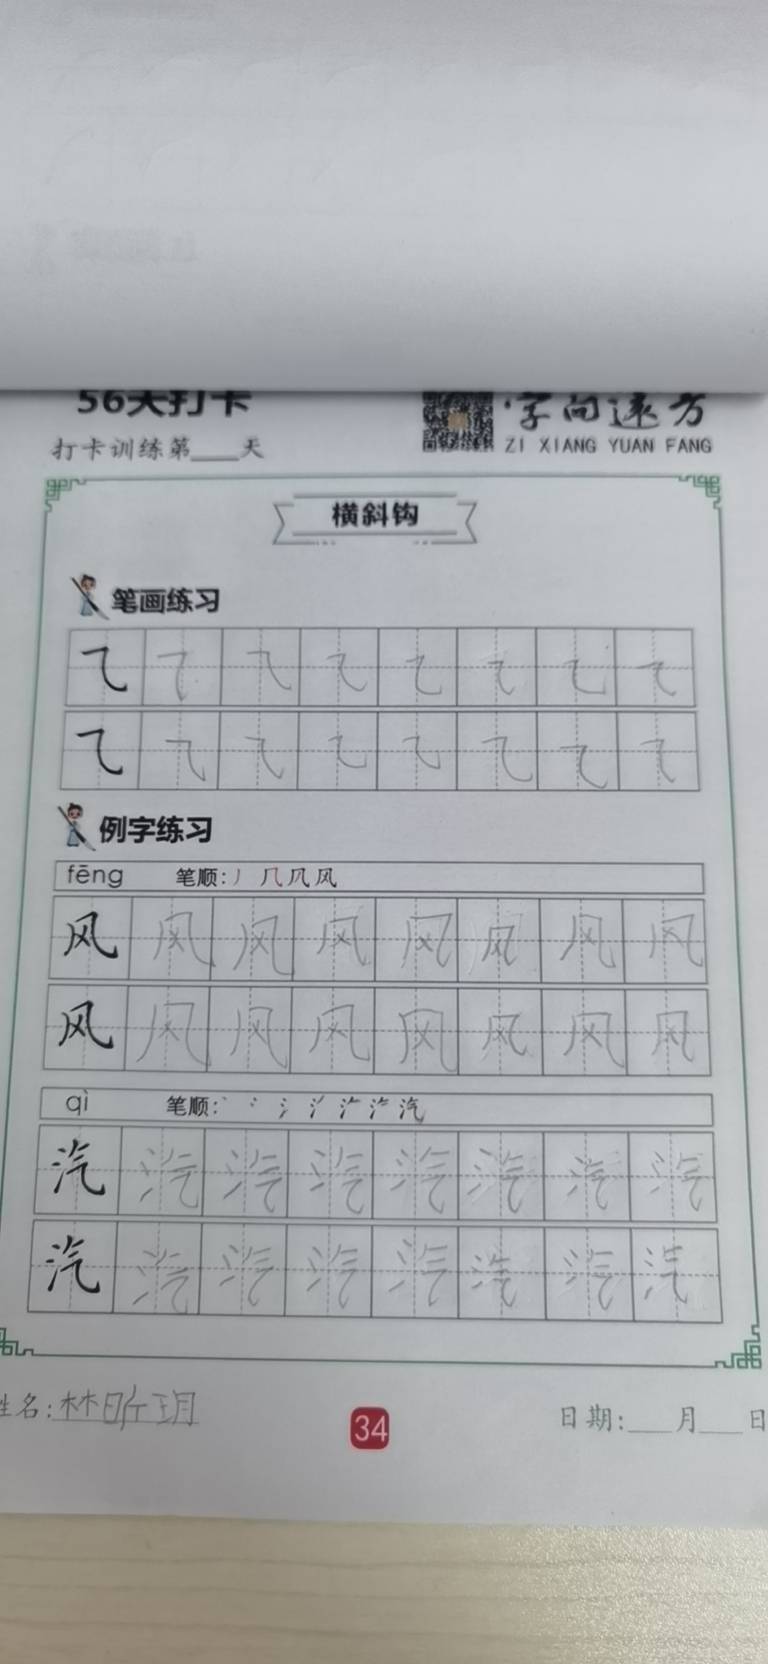 56天打卡
字向远方
打卡训练第___天
ZI XIANG YUAN FANG
横斜钩
笔画练习
⺄ ⺄ ⺄ ⺄ ⺄ ⺄ ⺄ ⺄
⺄ ⺄ ⺄ ⺄ ⺄ ⺄ ⺄ ⺄
例字练习
fēng 笔顺:丿 几 凤 风
风 风 风 风 风 风 风 风
风 风 风 风 风 风 风 风
qì 笔顺:
汽 汽 汽 汽 汽 汽 汽 汽
汽 汽 汽 汽 汽 汽 汽 汽
姓名:林昕玥
34
日期:___月___日